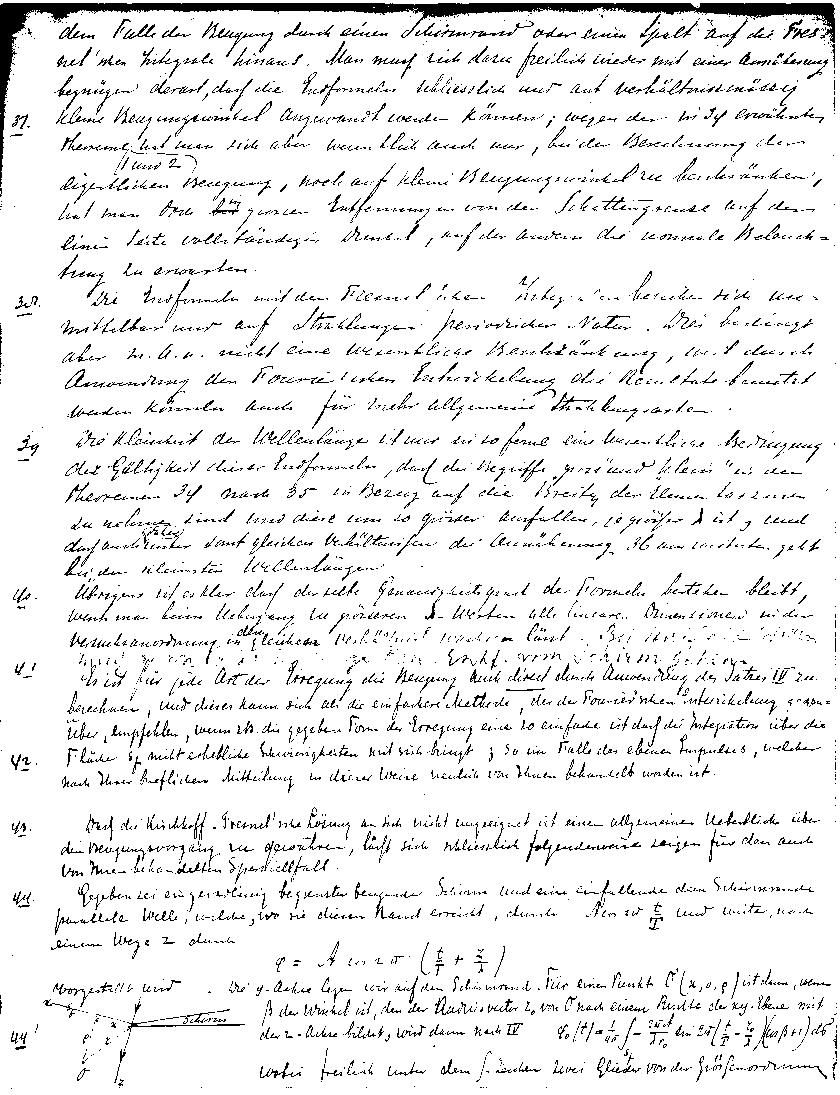 dem Falle der Beugung durch einen Schirmrand oder einen Spalt auf die Fres-
nel'schen Integrale hinaus. Man muss sich dazu freilich wieder mit einer Annäherung
begnügen derart, dass die Endformeln schliesslich nur auf verhältnissmässig
37. kleine Beugungswinkel angewandt werden können; wegen der in 34 erwähnten
Theoreme hat man sich aber wesentlich auch nur, bei der Berechnung der
1 und 2
eigentlichen Beugung, noch auf kleine Beugungswinkel zu beschränken,
hat man doch grossen Entfernungen von der Schattengrenze auf der
einen Seite vollständiges Dunkel, auf der andern die normale Beleuch-
tung zu erwarten.
38. Die Endformeln mit den Fresnel'schen Integralen beziehen sich un-
mittelbar nur auf Strahlungen periodischer Natur. Dies bedingt
aber m. A. n. nicht eine wesentliche Beschränkung, weil durch
Anwendung der Fourier'schen Entwickelung die Resultate benutzt
werden können auch für mehr allgemeine Strahlungsarten.
39 Die Kleinheit der Wellenlänge ist nur in soferne eine wesentliche Bedingung
der Gültigkeit dieser Endformeln, dass die Begriffe "gross" und "klein" in den
Theoremen 34 nach 35 in Bezug auf die Breite der
zu nehmen sind und diese um so grösser ausfallen, je grösser λ ist, und
dass auch unter sonst gleichen Verhältnissen die Annäherung 36 am weitesten geht
bei den kleinsten Wellenlängen.
40. Übrigens ist es klar dass derselbe Genauigkeitsgrad der Formeln bestehen bleibt,
wenn man beim Uebergang zu grösseren λ-Werten alle linearen Dimensionen in der
Versuchsanordnung in dem gleichen Verhältniss wachsen lässt.
41 Es ist für jede Art der Erregung die Beugung auch direct durch Anwendung des Satzes IV zu
berechnen, und dieses kann sich als die einfachere Methode, der der Fourier'schen Entwickelung gegenü-
über, empfehlen, wenn die gegebene Form der Erregung eine so einfache ist dass die Integration über die
42. Fläche nicht erhebliche Schwierigkeiten mit sich bringt; so im Falle des ebenen Impulses, welcher
nach Ihrer brieflichen Mittheilung in dieser Weise neulich von Ihnen behandelt worden ist.
43. Dass die Kirchhoff-Fresnel'sche Lösung an sich nicht ungeeignet ist einen allgemeinen Ueberblick über
den Beugungsvorgang zu gewähren, lässt sich schliesslich folgenderweise zeigen für den auch
von Ihnen behandelten Speciellfall.
44. Gegeben sei ein geradlinig begrenzter beugender Schirm und eine einfallende dem Schirmrande
parallele Welle, welche, wo sie diesen Rand erreicht, durch A cos 2π t/T und weiter, nach
einem Wege z durch
φ = A cos 2π (t/T + z/λ)
vorgestellt wird. Die y-Achse legen wir auf den Schirmrand. Für einen Punkt O (x, o, z) ist dann, wenn
Schirm
β der Winkel ist, den der Radiusvector r₀ von O nach einem Punkte der xy-Ebene mit
44' der z-Achse bildet, wird dann nach IV
wobei freilich unter dem ∫-Zeichen zwei Glieder von der Grössenordnung